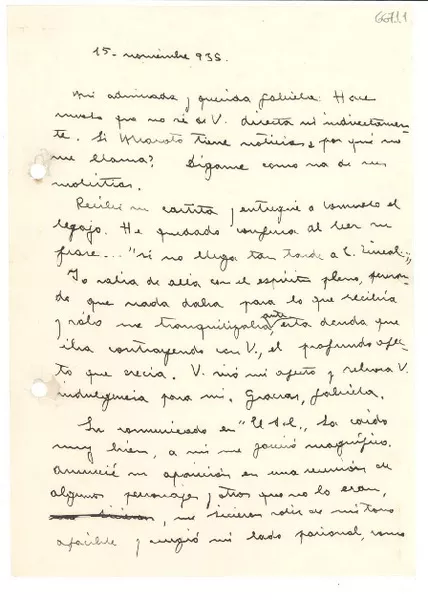 15- noviembre 935.
Mi admirada y querida Gabriela: Hace
mucho que no sé de V. directa ni indirectamen-
te. Si tiene noticias, por qué no
me llama? Dígame como va de sus
molestias.
Recibí su cartita y entregué a Consuelo el
legajo. He quedado confusa al leer su
frase... "si no llega tan tarde a C. Lineal",
Yo salía de allá con el espíritu pleno, pensan-
do que nada daba para lo que recibía
y sólo me tranquilizaba ante esta deuda que
iba contrayendo con V., el profundo afec-
to que crecía. V. vió mi afecto y rebosa V.
indulgencia para mí. Gracias, Gabriela.
Su comunicado en "El Sol", ha caído
muy bien, a mí me pareció magnífico.
Anuncié su aparición en una reunión de
algunos personajes y otros que no lo eran,
me hicieron salir de mi tono
apacible y surgió mi lado pasional, como